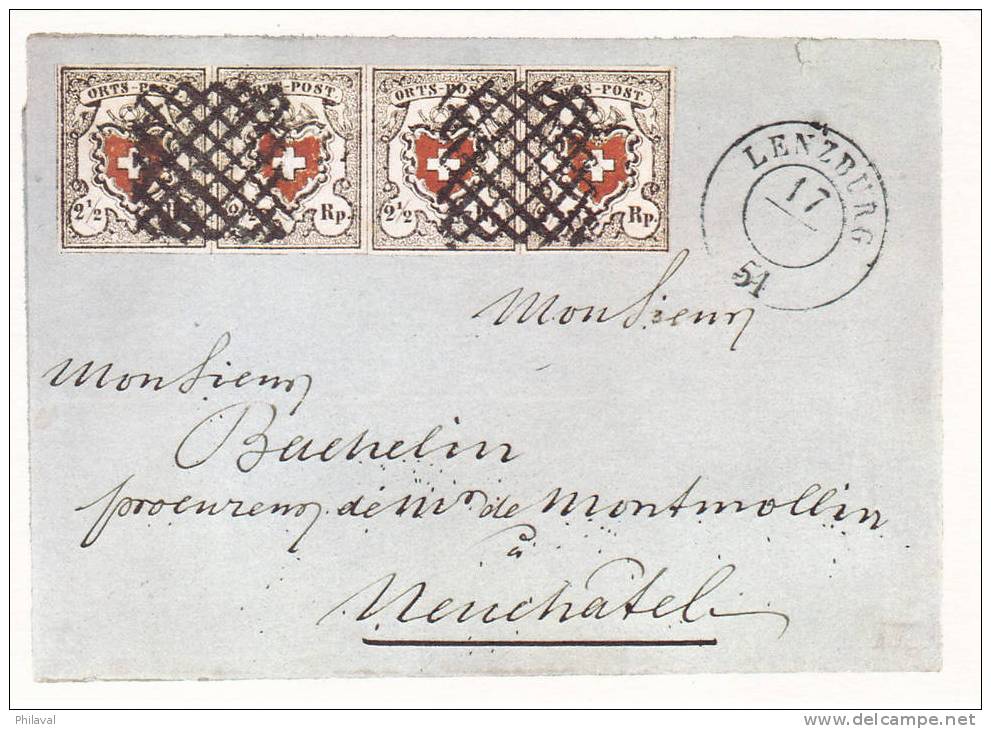 ORTS-POST ORTS-POST ORTS-POST ORTS-POST
2 1/2 Rp. 2 1/2 Rp.
LENZBURG
17
51
Monsieur
Monsieur
Bachelin
procureur de Mr de Montmollin
à
Neuchâtel
Philaval
delcampe.net